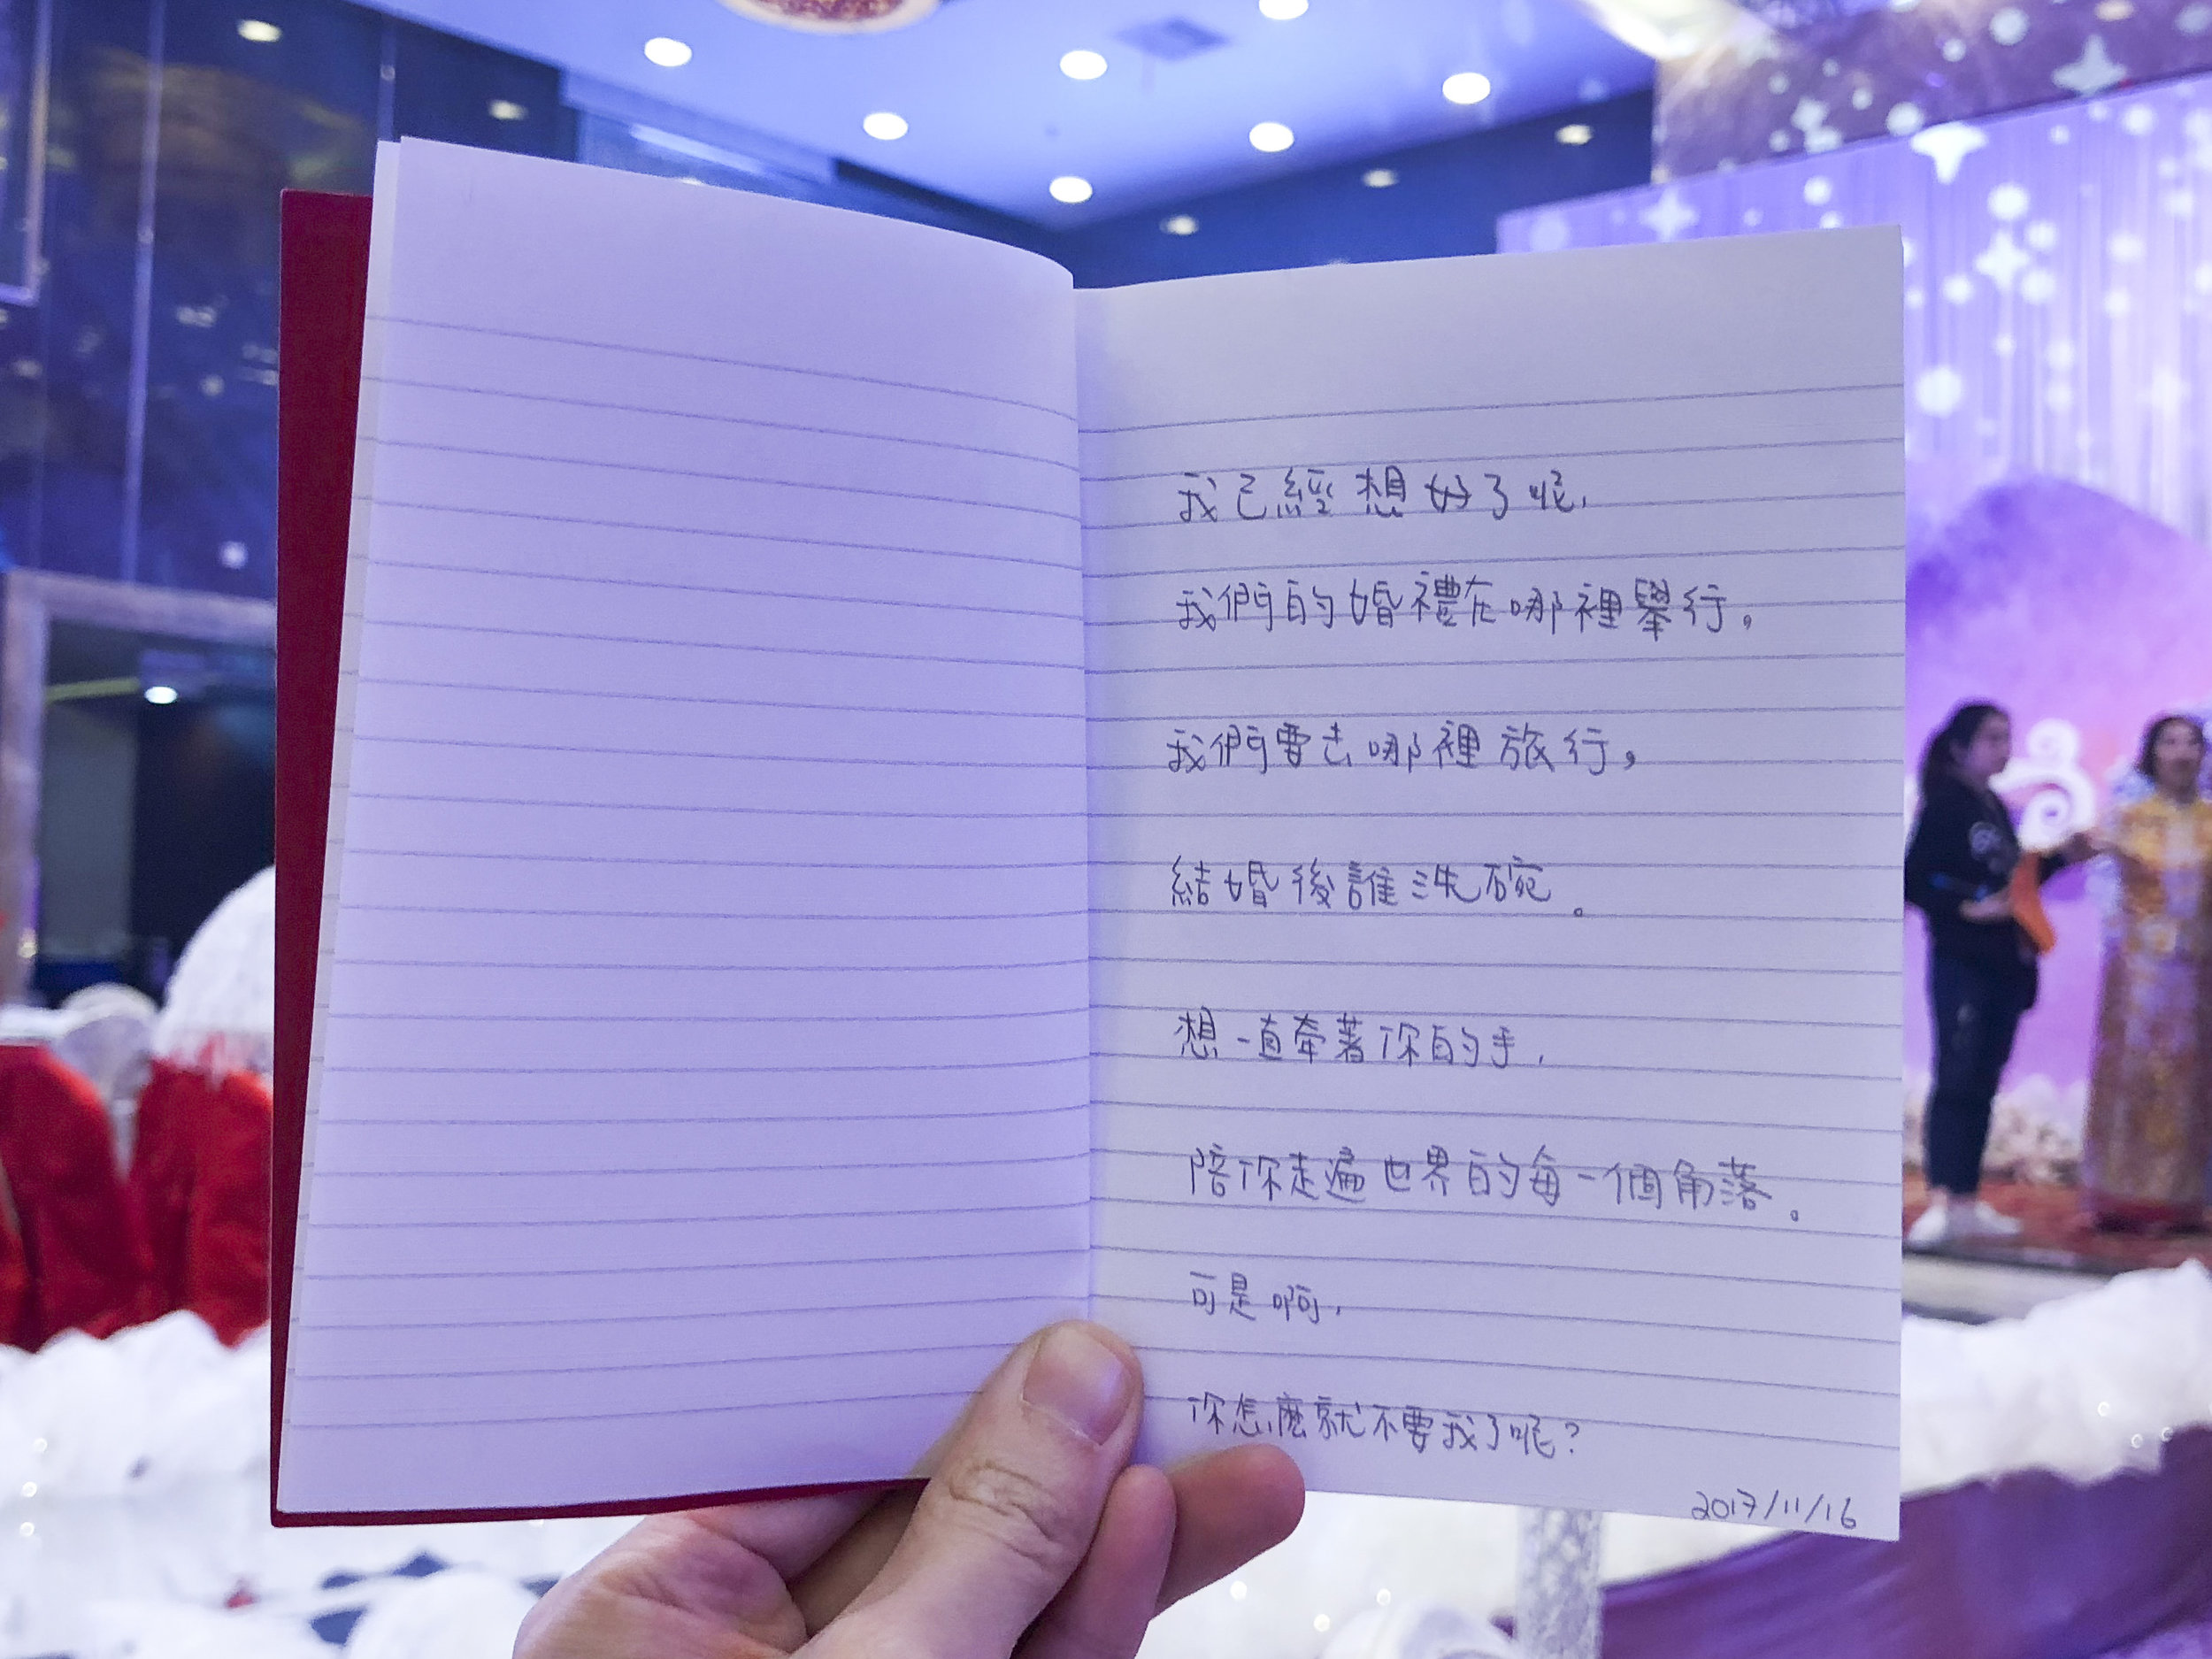 我已經想好了呢，
我們的婚禮在哪裡舉行。
我們要去哪裡旅行，
結婚後誰洗碗。
想一直牽著你的手，
陪你走遍世界的每一個角落。
可是啊，
你怎麼就不要我了呢？
2017/11/16